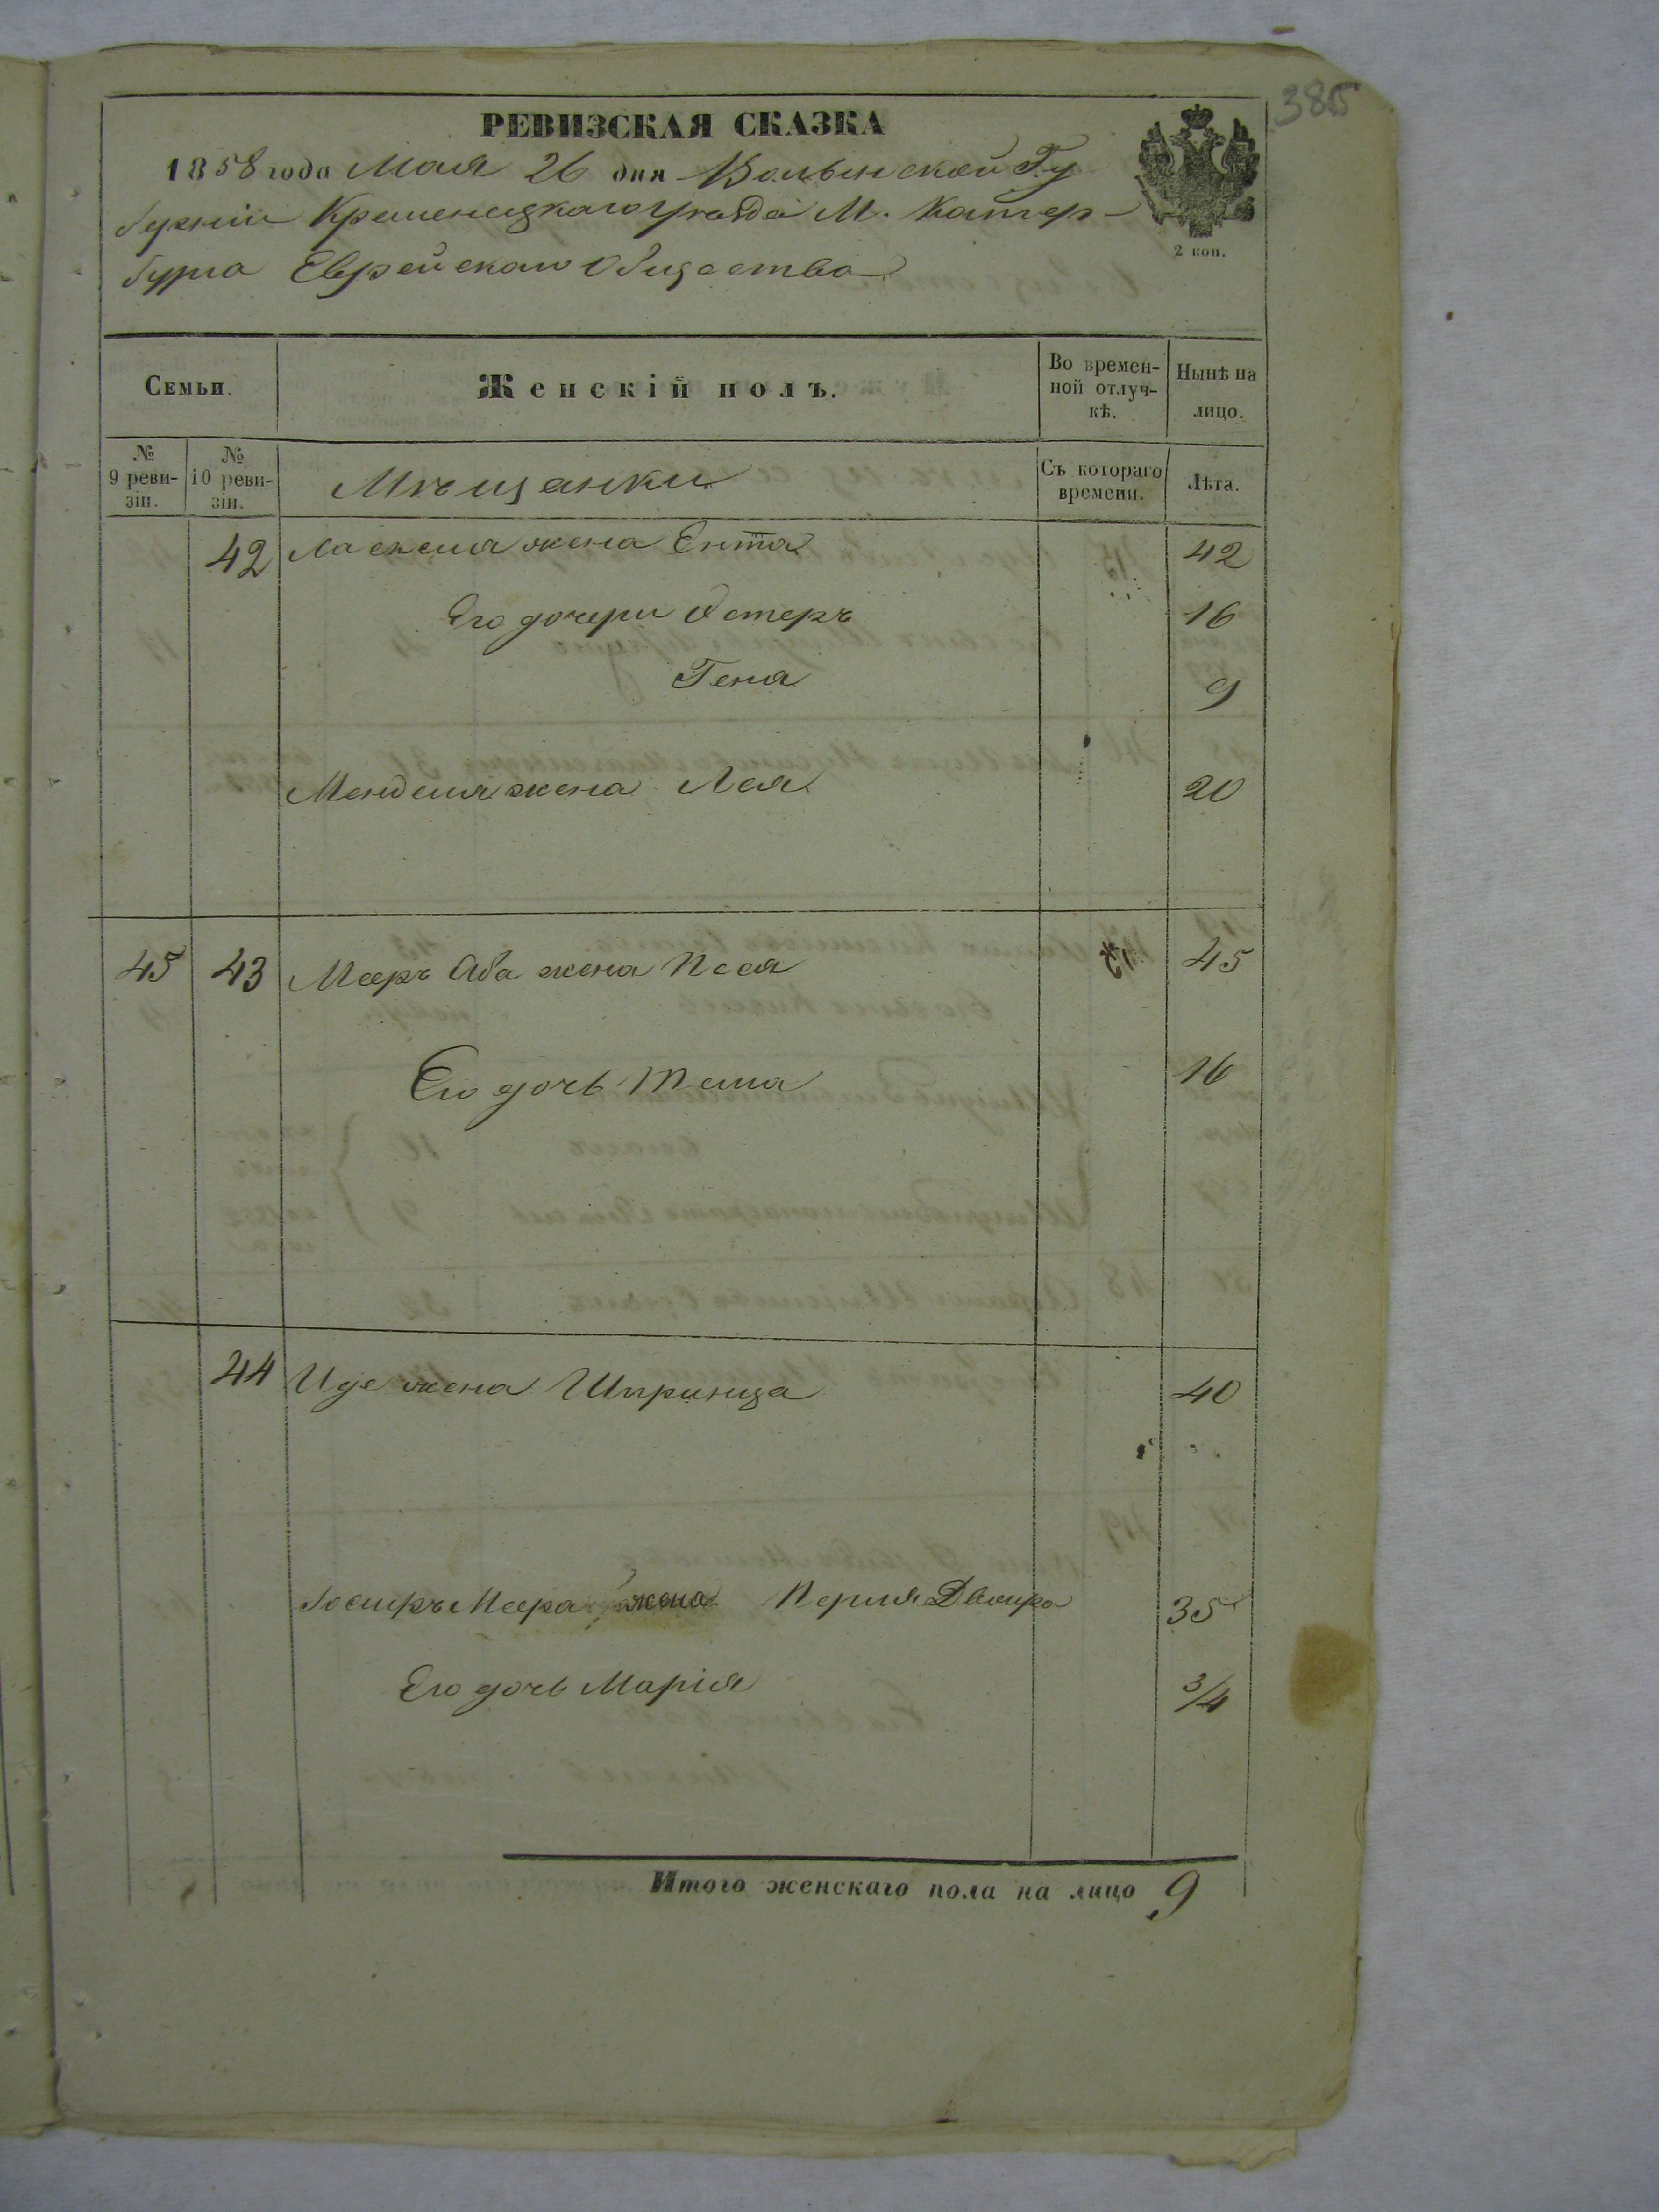 385
РЕВИЗСКАЯ СКАЗКА
1858 года Мая 26 дня Волынской Гу
берніи Кременецкаго уѣзда М. Катер-
бурга Еврейскаго Общества
2 коп.
Семьи. Женскій полъ. Во времен-ной отлуч-кѣ. Нынѣ на лицо.
№ 9 реви-зіи. № 10 реви-зіи. Мѣщанки Съ котораго времени. Лѣта.
42 жена Ента 42
Его дочери Остеръ 16
Геня 9
Менделя жена Лея 20
45 43 Мееръ Аба жена Песя 45
Его дочь 16
44 Иде жена Шпринца 40
Меера жена Перля Двойра 35
Его дочь Марія 3/4
Итого женскаго пола на лицо 9